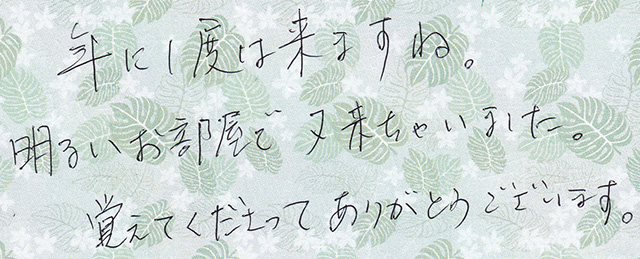 年に1度は来ますね。
明るいお部屋で又来ちゃいました。
覚えてくださってありがとうございます。